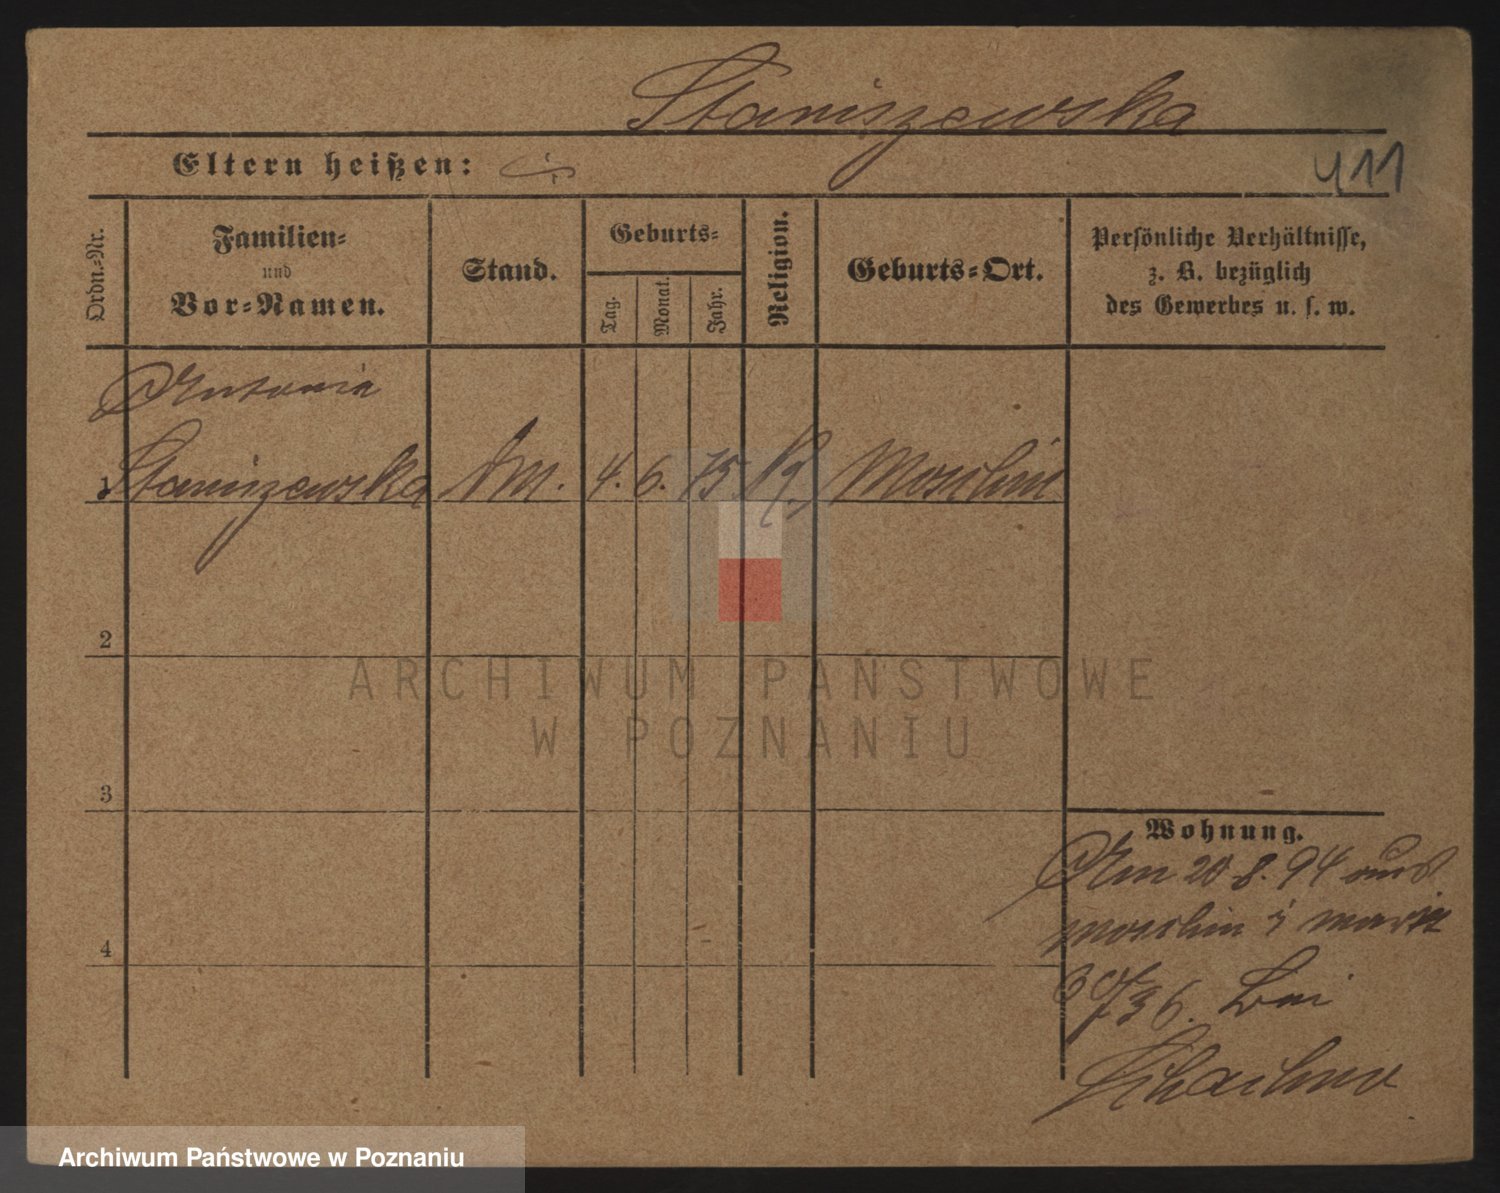 Staniszewska
Eltern heißen:
411
Ordn.-Nr.
Familien-
und
Vor-Namen.
Stand.
Geburts-
Tag.
Monat.
Jahr.
Religion.
Geburts-Ort.
Persönliche Verhältnisse,
z. B. bezüglich
des Gewerbes u. s. w.
Antonia
1 Staniszewska 4. 6. 75 Moschin
2
3
4
Wohnung.
Am 20 8. 94 aus
Moschin
36. bei
ARCHIWUM PAŃSTWOWE
W POZNANIU
Archiwum Państwowe w Poznaniu